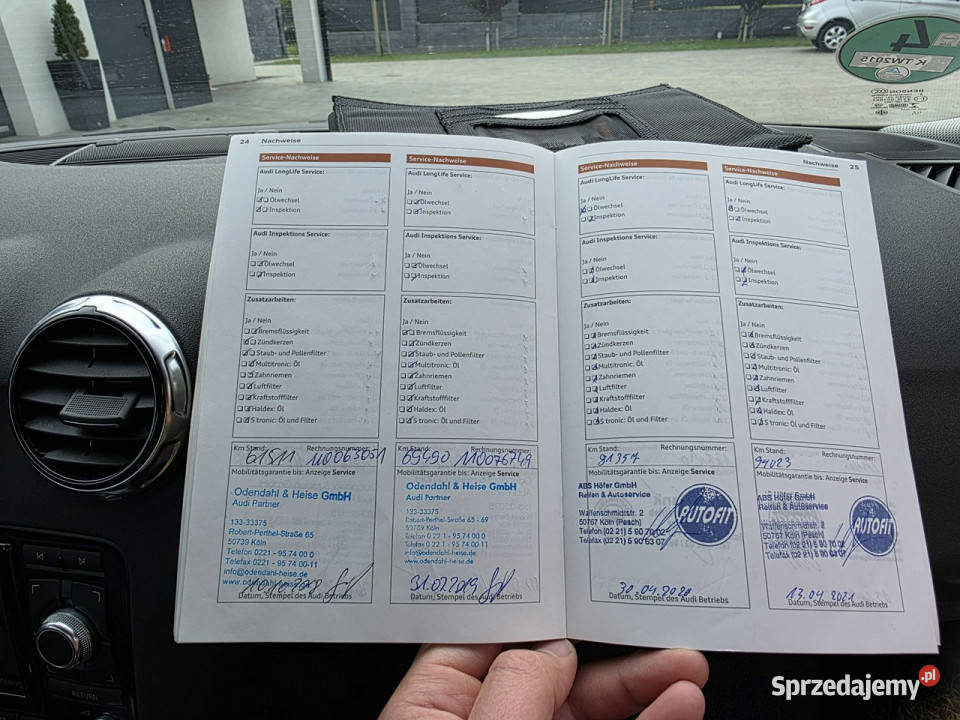 24 Nachweise
Service-Nachweise
Audi LongLife Service:
Ja / Nein
Ölwechsel
Inspektion
Audi Inspektions Service:
Ja / Nein
Ölwechsel
Inspektion
Zusatzarbeiten:
Ja / Nein
Bremsflüssigkeit
Zündkerzen
Staub- und Pollenfilter
Multitronic: Öl
Zahnriemen
Luftfilter
Kraftstofffilter
Haldex: Öl
S tronic: Öl und Filter
Km Stand: Rechnungsnummer:
Mobilitätsgarantie bis: Anzeige Service
Odendahl & Heise GmbH
Audi Partner
133-33375
Robert-Perthel-Straße 65
50739 Köln
Telefon 0221 - 95 74 00 0
Telefax 0221 - 95 74 00-11
info@odendahl-heise.de
Datum, Stempel des Audi Betriebs
Service-Nachweise
Audi LongLife Service:
Ja / Nein
Ölwechsel
Inspektion
Audi Inspektions Service:
Ja / Nein
Ölwechsel
Inspektion
Zusatzarbeiten:
Ja / Nein
Bremsflüssigkeit
Zündkerzen
Staub- und Pollenfilter
Multitronic: Öl
Zahnriemen
Luftfilter
Kraftstofffilter
Haldex: Öl
S tronic: Öl und Filter
Km Stand: Rechnungsnummer:
Mobilitätsgarantie bis: Anzeige Service
Odendahl & Heise GmbH
Audi Partner
133-33375
Robert-Perthel-Straße 65 - 69
50739 Köln
Telefon 0 22 1 - 95 74 00 0
Telefax 0 22 1 - 95 74 00 11
info@odendahl-heise.de
www.odendahl-heise.de
31.07.2019
Datum, Stempel des Audi Betriebs
Nachweise 25
Service-Nachweise
Audi LongLife Service:
Ja / Nein
Ölwechsel
Inspektion
Audi Inspektions Service:
Ja / Nein
Ölwechsel
Inspektion
Zusatzarbeiten:
Ja / Nein
Bremsflüssigkeit
Zündkerzen
Staub- und Pollenfilter
Multitronic: Öl
Zahnriemen
Luftfilter
Kraftstofffilter
Haldex: Öl
S tronic: Öl und Filter
Km Stand: Rechnungsnummer:
91357
Mobilitätsgarantie bis: Anzeige Service
ABS Höfer GmbH
Reifen & Autoservice
Waffenschmidtstr. 2
50767 Köln (Pesch)
Telefon (02 21) 5 90 70 02
Telefax (02 21) 5 90 63 07
AUTOFIT
30.04.2020
Datum, Stempel des Audi Betriebs
Service-Nachweise
Audi LongLife Service:
Ja / Nein
Ölwechsel
Inspektion
Audi Inspektions Service:
Ja / Nein
Ölwechsel
Inspektion
Zusatzarbeiten:
Ja / Nein
Bremsflüssigkeit
Zündkerzen
Staub- und Pollenfilter
Multitronic: Öl
Zahnriemen
Luftfilter
Kraftstofffilter
Haldex: Öl
S tronic: Öl und Filter
Km Stand: Rechnungsnummer:
94023
Mobilitätsgarantie bis: Anzeige Service
ABS Höfer GmbH
Reifen & Autoservice
Waffenschmidtstr. 2
50767 Köln (Pesch)
Telefon (02 21) 5 90 70 02
Telefax (02 21) 5 90 63 07
AUTOFIT
13.04.2021
Datum, Stempel des Audi Betriebs
4
K TW2015
RETURN
Sprzedajemy.pl